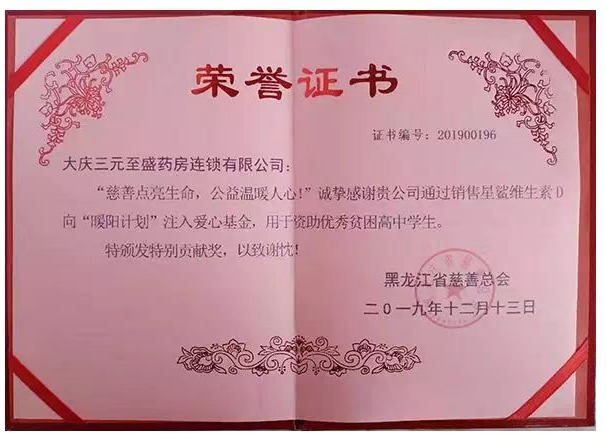 荣誉证书
证书编号：201900196
大庆三元至盛药房连锁有限公司：
“慈善点亮生命，公益温暖人心！”诚挚感谢贵公司通过销售星鲨维生素D
向“暖阳计划”注入爱心基金，用于资助优秀贫困高中学生。
特颁发特别贡献奖，以致谢忱！
黑龙江省慈善总会
二0一九年十二月十三日